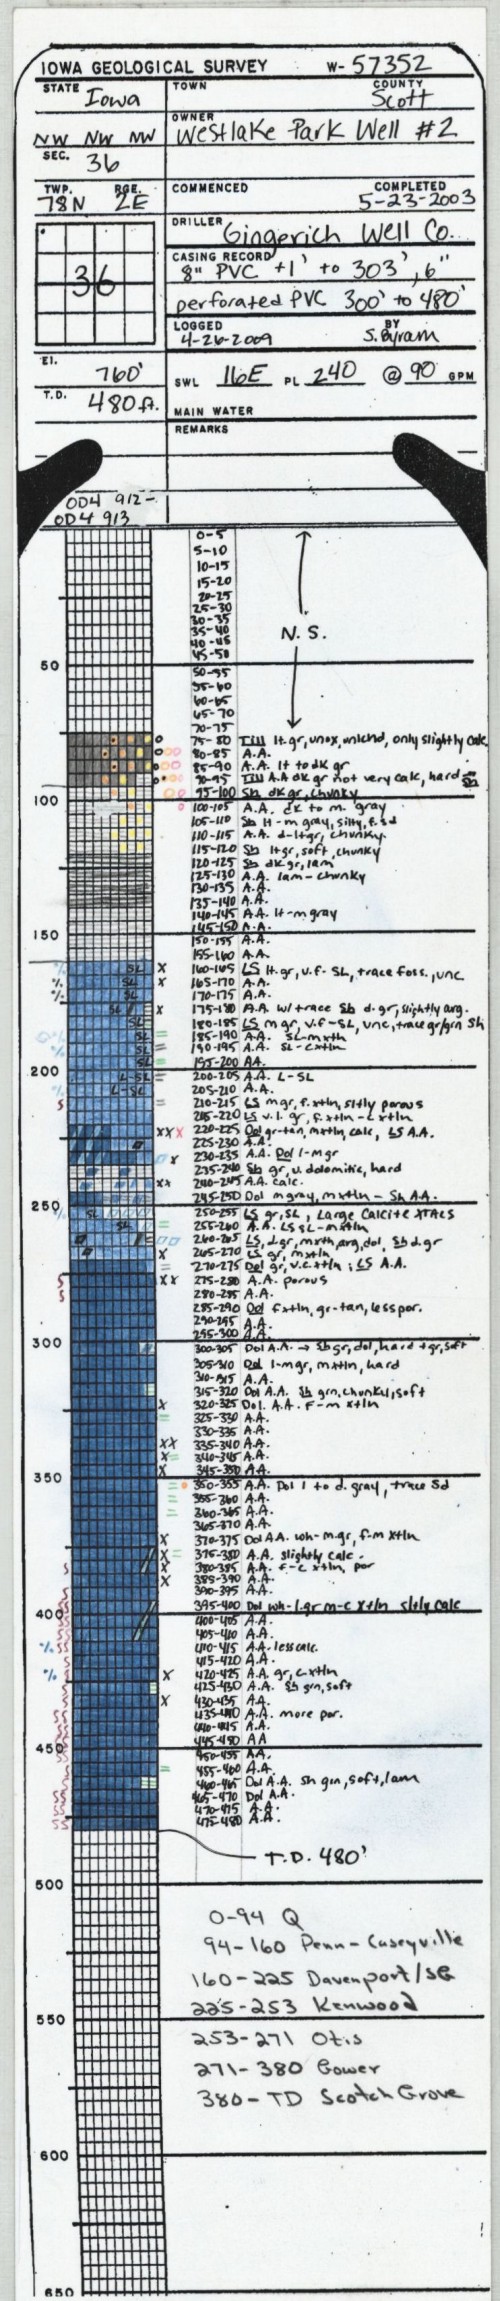 IOWA GEOLOGICAL SURVEY W- 57352
STATE Iowa TOWN COUNTY Scott
NW NW NW OWNER Westlake Park Well #2
SEC. 36
TWP. 78N RGE. 2E COMMENCED COMPLETED 5-23-2003
DRILLER Gingerich Well Co.
36
CASING RECORD 8" PVC +1' to 303', 6"
perforated PVC 300' to 480'
LOGGED 4-26-2009 BY S. Byram
El. 760' SWL 116E PL 240 @ 90 GPM
T.D. 480 ft.
MAIN WATER
REMARKS
OD4 912-
OD4 913
0-5
5-10
10-15
15-20
20-25
25-30
30-35
35-40 N.S.
40-45
45-50
50 50-55
55-60
60-65
65-70
70-75
75-80 Till lt.gr, unox, unlchd, only slightly calc
80-85 A.A.
85-90 A.A. lt to dk gr
90-95 Till A.A dk gr not very calc, hard Sh
95-100 Sh dk gr, chunky
100 100-105 A.A. dk to m. gray
105-110 Sh lt-m gray, silty, f. sd
110-115 A.A. d-ltgr, chunky.
115-120 Sh ltgr, soft, chunky
120-125 Sh dk gr, lam
125-130 A.A. lam-chunky
130-135 A.A.
135-140 A.A.
140-145 A.A. lt-m gray
145-150 A.A.
150 150-155 A.A.
155-160 A.A.
160-165 LS lt.gr, v.f-SL, trace foss., unc
165-170 A.A.
170-175 A.A.
175-180 A.A. w/trace Sh d.gr, slightly arg.
180-185 LS m gr, v.f-SL, unc, trace gr/grn Sh
185-190 A.A. SL-mxtln
190-195 A.A. SL-cxtln
195-200 AA.
200 200-205 A.A. L-SL
205-210 A.A.
210-215 LS mgr, f.xtln, sltly porous
215-220 LS v.l. gr, f.xtln-c xtln
220-225 Dol gr-tan, mxtln, calc, LS A.A.
225-230 A.A.
230-235 A.A. Dol l-mgr
235-240 Sh gr, v. dolomitic, hard
240-245 A.A. calc.
245-250 Dol m gray, mxtln - Sh A.A.
250 250-255 LS gr, SL, Large Calcite XTALS
255-260 A.A. LS SL-mxtln
260-265 LS, d.gr, mxtln, arg, dol, Sh d.gr
265-270 LS gr, mxtln
270-275 Dol gr, v.c.xtln; LS A.A.
275-280 A.A. porous
280-285 A.A.
285-290 Dol fxtln, gr-tan, less por.
290-295 A.A.
295-300 A.A.
300 300-305 Dol A.A. → Sh gr, dol, hard + gr, soft
305-310 Dol l-mgr, mxtln, hard
310-315 A.A.
315-320 Dol A.A. Sh grn, chunky, soft
320-325 Dol. A.A. F-m xtln
325-330 A.A.
330-335 A.A.
335-340 A.A.
340-345 A.A.
345-350 A.A.
350 350-355 A.A. Dol l to d. gray, trace Sd
355-360 A.A.
360-365 A.A.
365-370 A.A.
370-375 Dol AA. wh-m.gr, f-m xtln
375-380 A.A. slightly calc.
380-385 A.A. f-c xtln, por
385-390 A.A.
390-395 A.A.
395-400 Dol wh-l.gr m-c xtln sltly calc
400 400-405 A.A.
405-410 A.A.
410-415 A.A. less calc.
415-420 A.A.
420-425 A.A. gr, c-xtln
425-430 A.A. Sh grn, soft
430-435 A.A.
435-440 A.A. more por.
440-445 A.A.
445-450 AA
450 450-455 AA.
455-460 A.A.
460-465 Dol A.A. Sh grn, soft, lam
465-470 Dol A.A.
470-475 A.A.
475-480 A.A.
T.D. 480'
500
0-94 Q
94-160 Penn-Caseyville
160-225 Davenport/SG
225-253 Kenwood
550
253-271 Otis
271-380 Gower
380-TD Scotch Grove
600
650